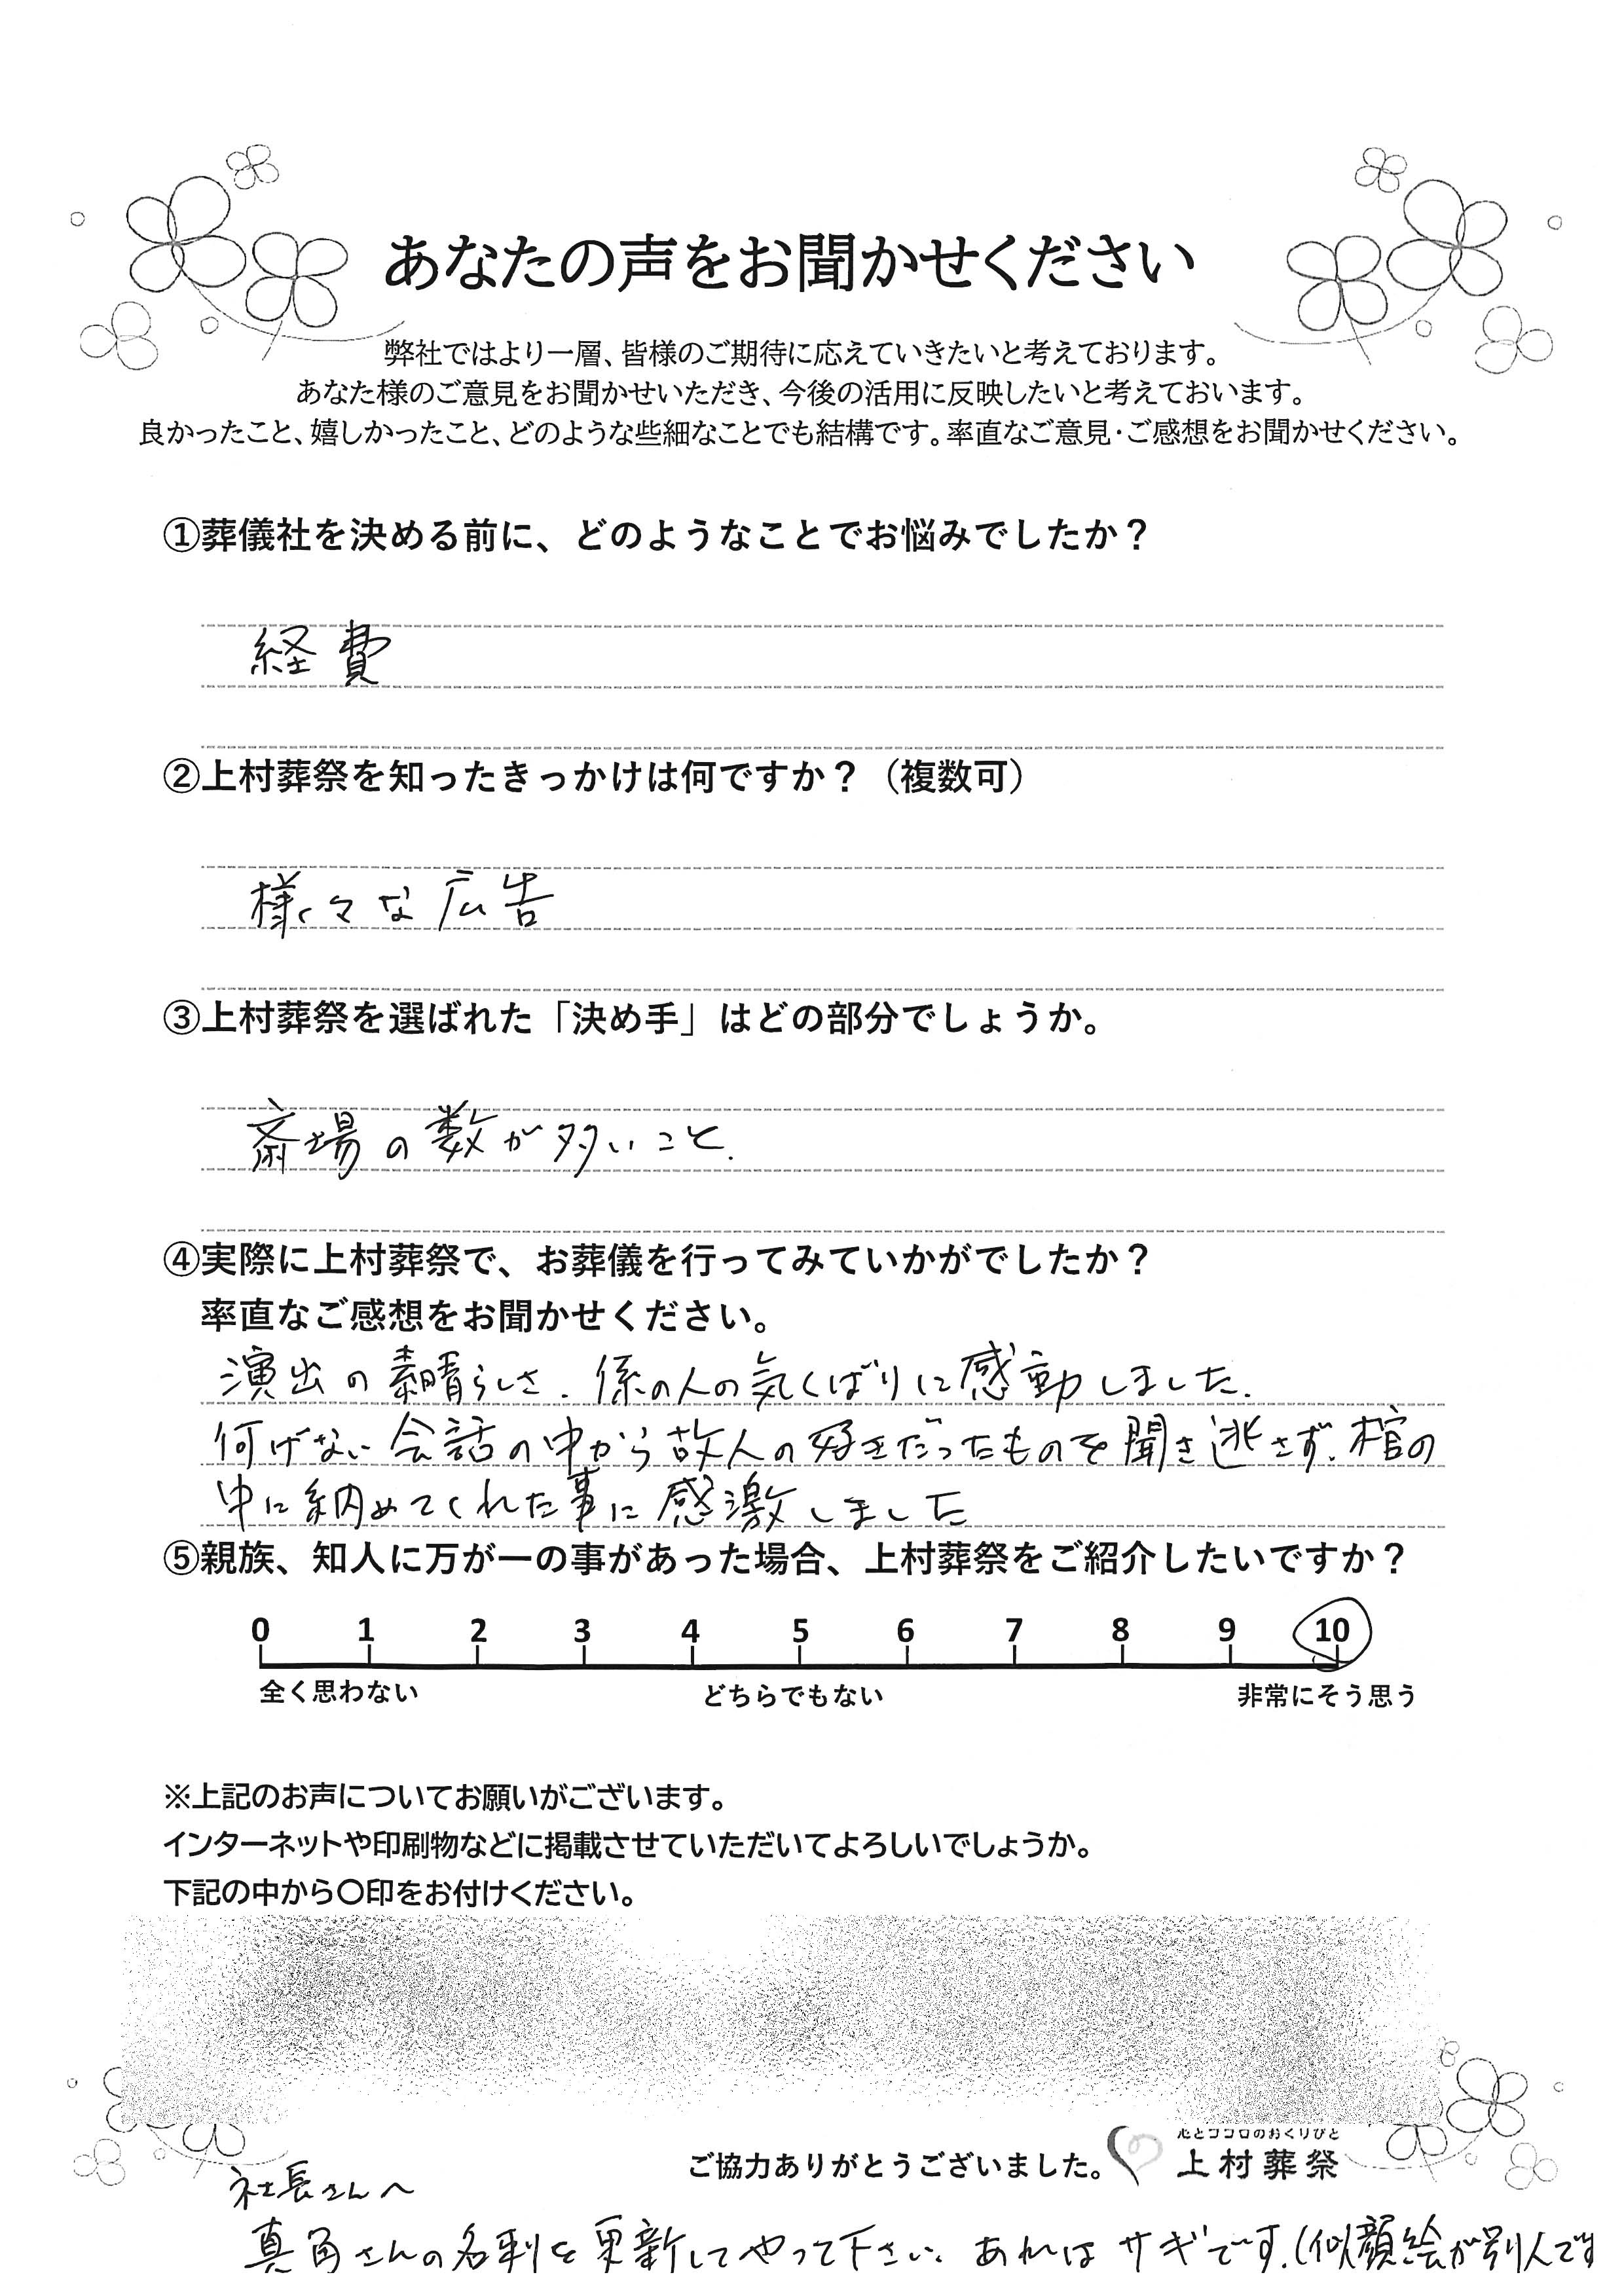 あなたの声をお聞かせください
弊社ではより一層、皆様のご期待に応えていきたいと考えております。
あなた様のご意見をお聞かせいただき、今後の活用に反映したいと考えておいます。
良かったこと、嬉しかったこと、どのような些細なことでも結構です。率直なご意見・ご感想をお聞かせください。
①葬儀社を決める前に、どのようなことでお悩みでしたか？
経費
②上村葬祭を知ったきっかけは何ですか？（複数可）
様々な広告
③上村葬祭を選ばれた「決め手」はどの部分でしょうか。
斎場の数が多いこと.
④実際に上村葬祭で、お葬儀を行ってみていかがでしたか？
率直なご感想をお聞かせください。
演出の素晴らしさ.係の人の気くばりに感動しました.
何げない会話の中から故人の好きだったものを聞き逃さず.棺の
中に納めてくれた事に感激しました
⑤親族、知人に万が一の事があった場合、上村葬祭をご紹介したいですか？
0 1 2 3 4 5 6 7 8 9 10
全く思わない どちらでもない 非常にそう思う
※上記のお声についてお願いがございます。
インターネットや印刷物などに掲載させていただいてよろしいでしょうか。
下記の中から〇印をお付けください。
心とココロのおくりびと
ご協力ありがとうございました。 上村葬祭
社長さんへ
真角さんの名刺を更新してやって下さい. あれはサギです.(似顔絵が別人です